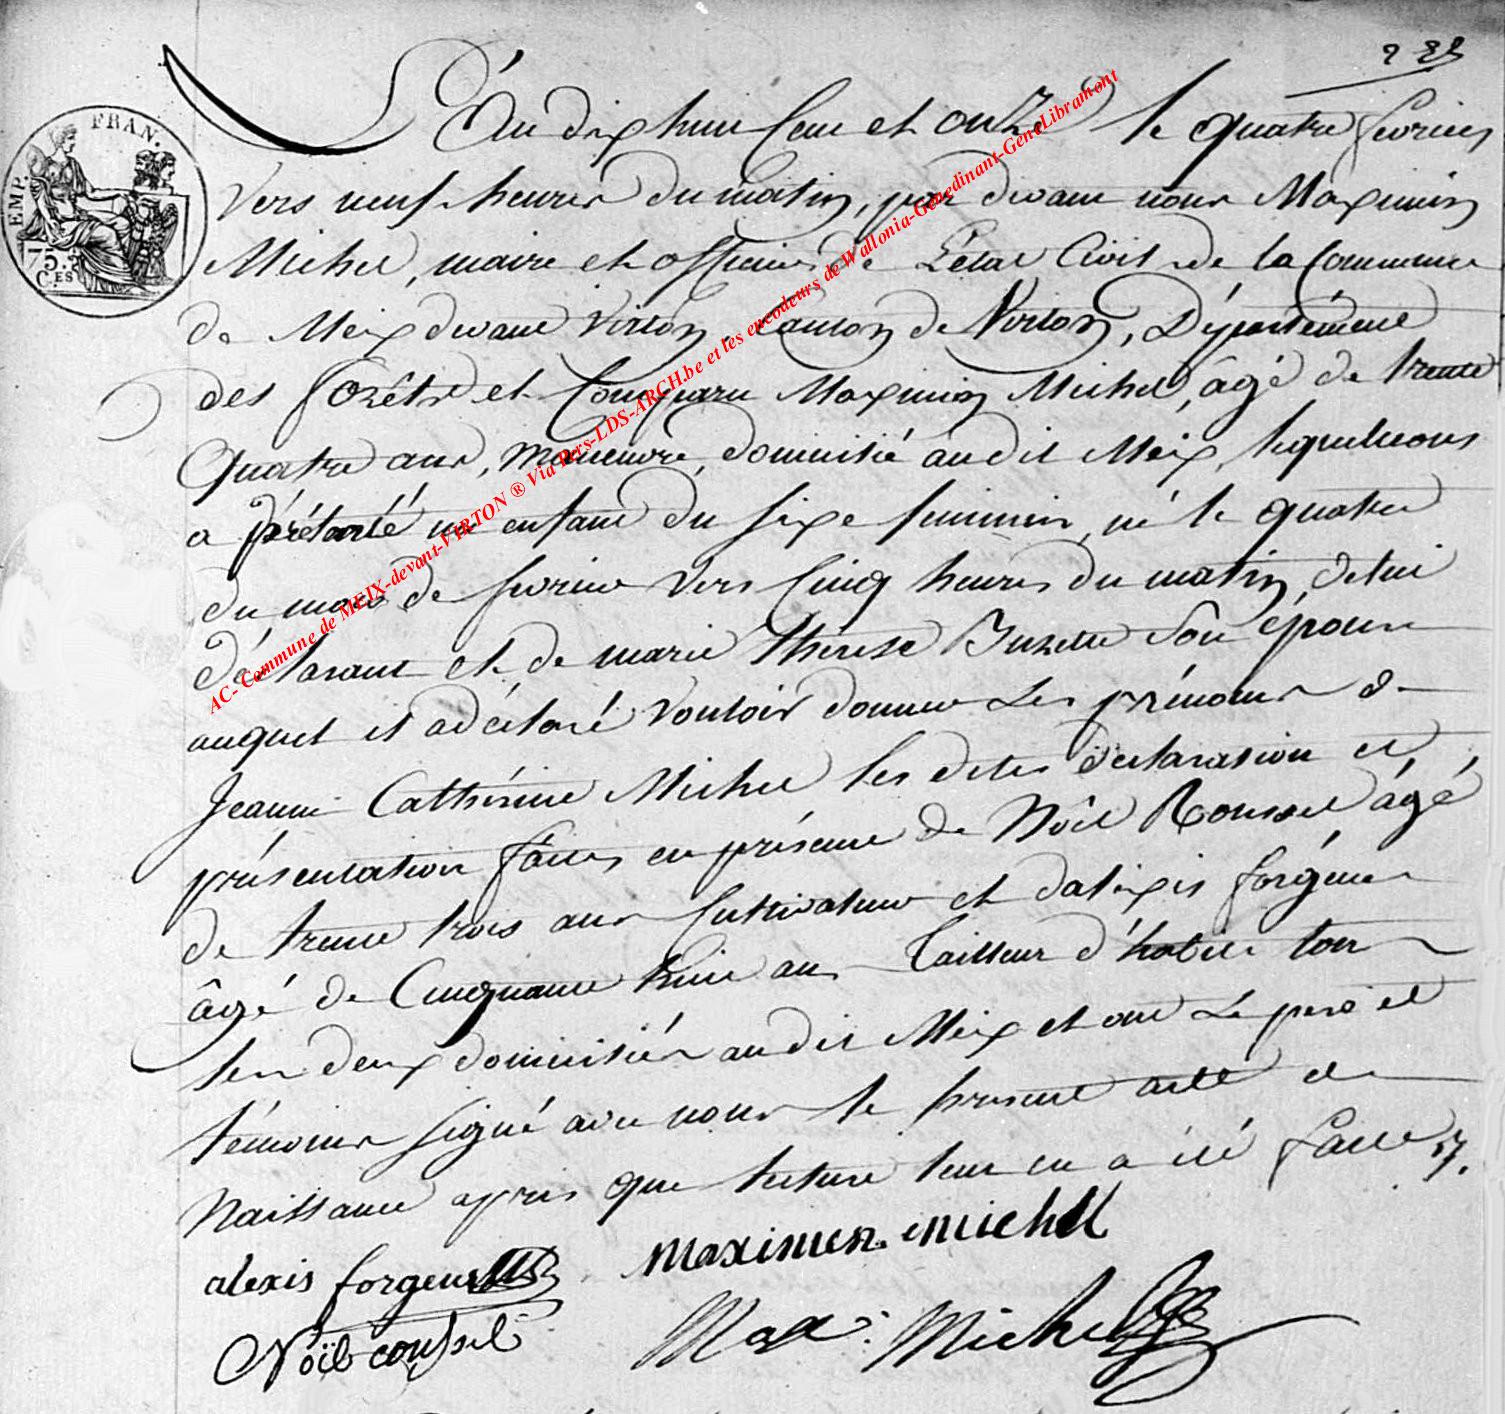 L'An dix huit Cent et onze le quatre fevrier
Vers neuf heures du matin, par devant nous Maximin
Michel, maire et officier de L'état Civil de la Commune
de Meix devant Virton, Canton de Virton, Département
des forêts et Comparu Maximin Michel, âgé de trente
Quatre ans, manoeuvre, domicilié audit Meix, lequel nous
a présenté un enfant du sexe feminin, né le quatre
du mois de fevrier vers Cinq heures du matin, de lui
déclarant et de marie thérese Son épouse
auquel il a déclaré Vouloir donner Les prénoms de
Jeanne Cathérine Michel les dites declaration et
présentation faites en présence de Nöel Roussel âgé
de trente trois ans Cultivateur et d'alexis forgeur
âgé de Cinquante huit ans Tailleur d'habits tous
les deux domiciliés audit Meix et ont Le pere et
témoins signé avec nous le present acte de
Naissance après que lecture leur en a été faite
alexis forgeur
maximin michel
Noël roussel
Max: Michel
EMP. FRAN.
75.
C.ES
AC- Commune de MEIX-devant-VIRTON ® Via Pers-LDS-ARCH.be et les encodeurs de Wallonia-Genedinant-GeneLibramont